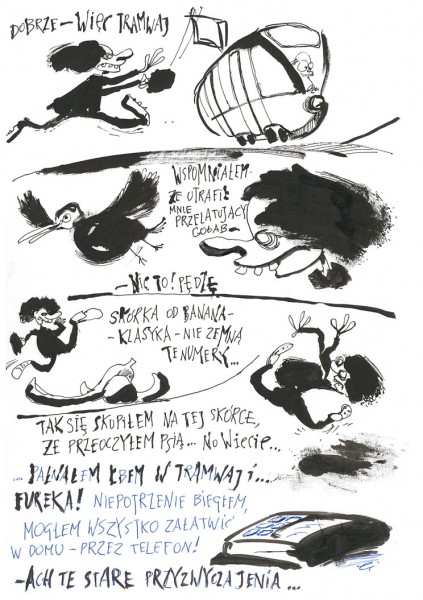 DOBRZE - WIĘC TRAMWAJ
WSPOMNIAŁEM
ŻE UTRAFIŁ
MNIE
PRZELATUJĄCY
GOŁĄB -
- NIC TO! PĘDZĘ
SKÓRKA OD BANANA -
- KLASYKA - NIE ZE MNĄ
TE NUMERY...
TAK SIĘ SKUPIŁEM NA TEJ SKÓRCE,
ŻE PRZEOCZYŁEM PSIĄ... NO WIECIE...
... PALNĄŁEM ŁBEM W TRAMWAJ I...
EUREKA! NIEPOTRZENIE BIEGŁEM,
MOGŁEM WSZYSTKO ZAŁATWIĆ
W DOMU - PRZEZ TELEFON!
- ACH TE STARE PRZYZWYCZAJENIA...